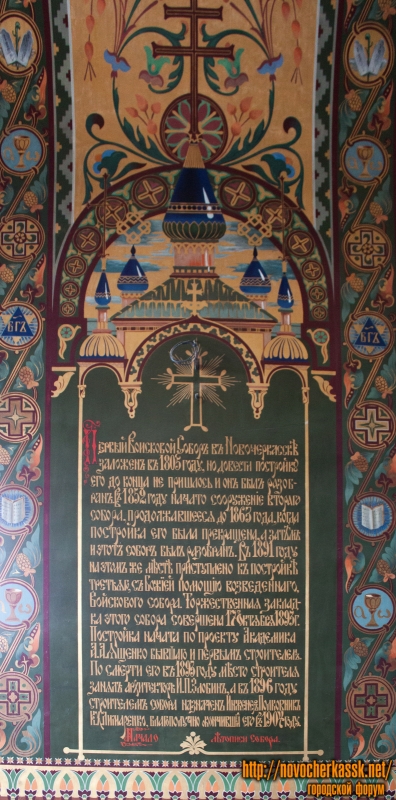 БГЪ
БГЪ
Первый Войсковой Соборъ въ Новочеркасскѣ
заложенъ въ 1805 году, но довести постройку
его до конца не пришлось и он былъ разоб-
ранъ. въ 1852 году начато сооруженіе второго
собора, продолжавшееся до 1863 года, когда
постройка его была прекращена, а затѣмъ
и этотъ соборъ былъ разобранъ. Въ 1891 году
на этомъ же мѣстѣ приступлено къ постройкѣ
третьяго, съ Божіей помощію возведеннаго,
Войскового собора. Торжественная заклад-
ка этого собора совершена 17 октября 1893 г.
Постройка начата по проекту Академика
А.А. Ященко бывшаго и первымъ строителемъ.
По смерти его въ 1893 году мѣсто строителя
занялъ Архитекторъ И.П. Злобинъ, а въ 1896 году
строителемъ собора назначенъ Инженеръ Полковникъ
К.Х. Лимаренко, благополучно окончивший его въ 1904 году.
Начало Лѣтописи Собора.
http://novocherkassk.net/
городской форум